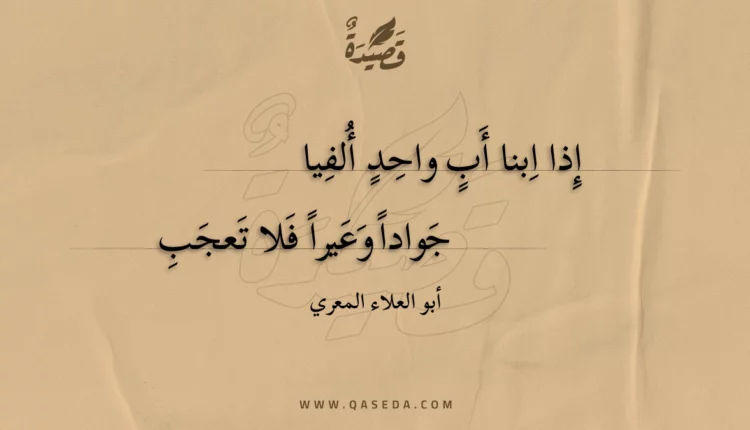 قَصِيْدَةٌ
إِذا اِبنا أَبٍ واحِدٍ أُلفِيا
جَواداً وَعَيراً فَلا تَعجَبِ
أبو العلاء المعري
WWW.QASEDA.COM